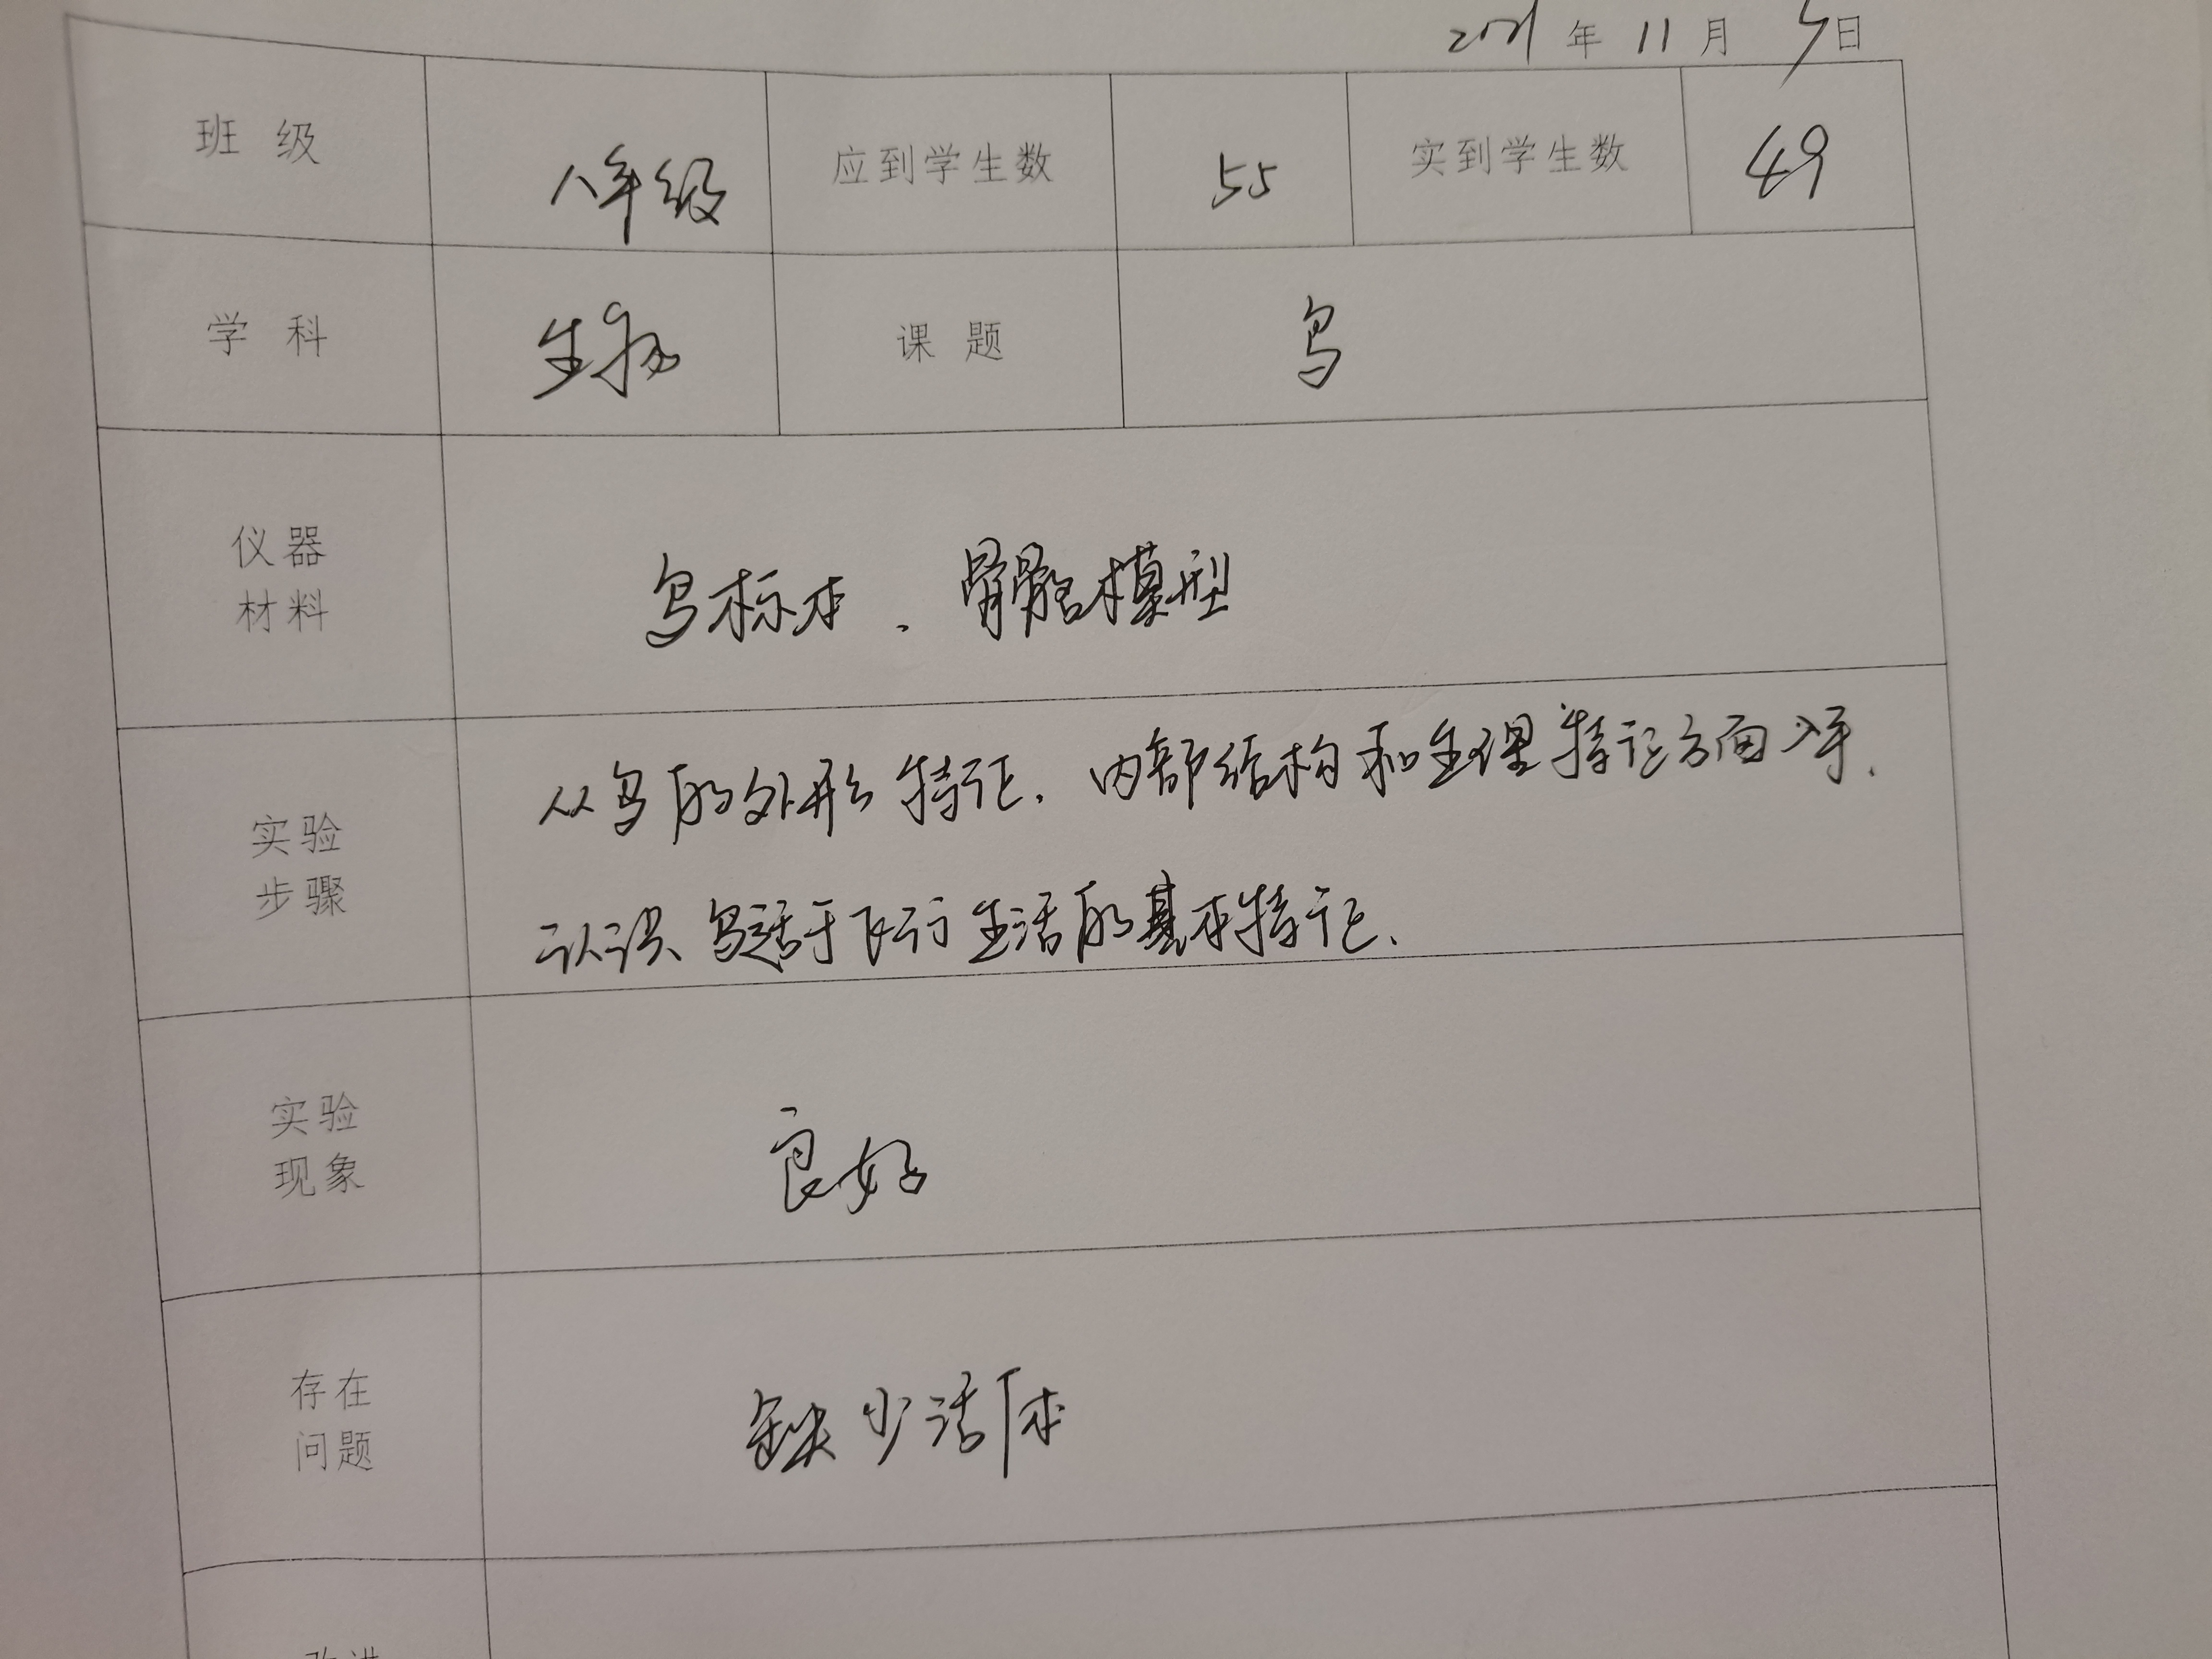 2021年11月5日
班级 八年级 应到学生数 55 实到学生数 49
学科 生物 课题 鸟
仪器
材料
鸟标本、骨骼模型
实验
步骤
从鸟的外形特征、内部结构和生理特征方面入手、
认识鸟适于飞行生活的基本特征、
实验
现象
良好
存在
问题
缺少活体